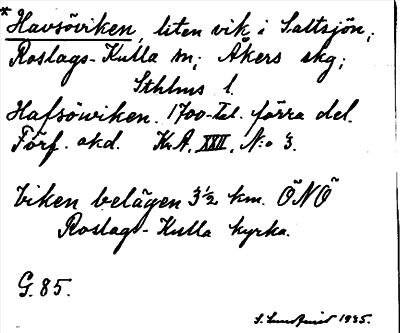 * Havsöviken, liten vik i Saltsjön;
Roslags-Kulla sn; Åkers skg;
Sthlms l.
Hafsöwiken. 1700-tal. förra del.
Förf. okd. Kr.A. XXII, N:o 3.
Viken belägen 3½ km. ÖNÖ
Roslags-Kulla kyrka.
G. 85.
S. Lundqvist 1935.